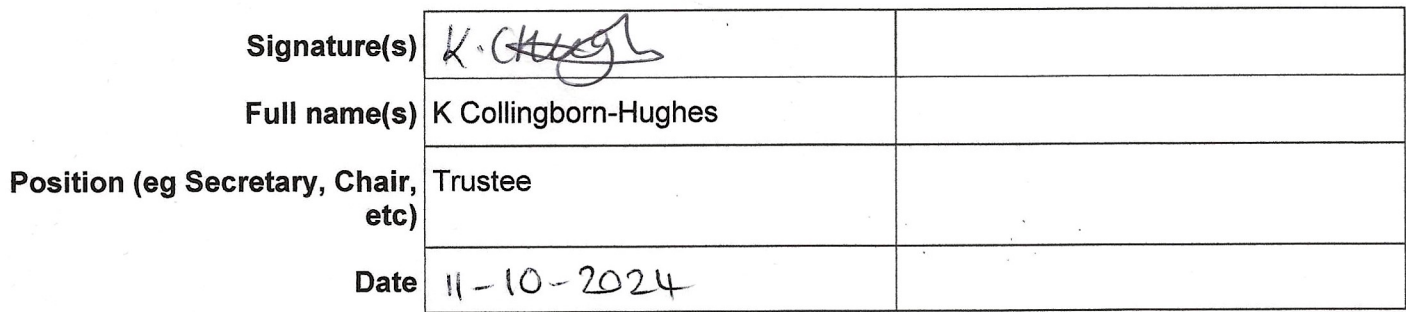 Signature(s) K. CHugh
Full name(s) K Collingborn-Hughes
Position (eg Secretary, Chair, Trustee
etc)
Date 11-10-2024